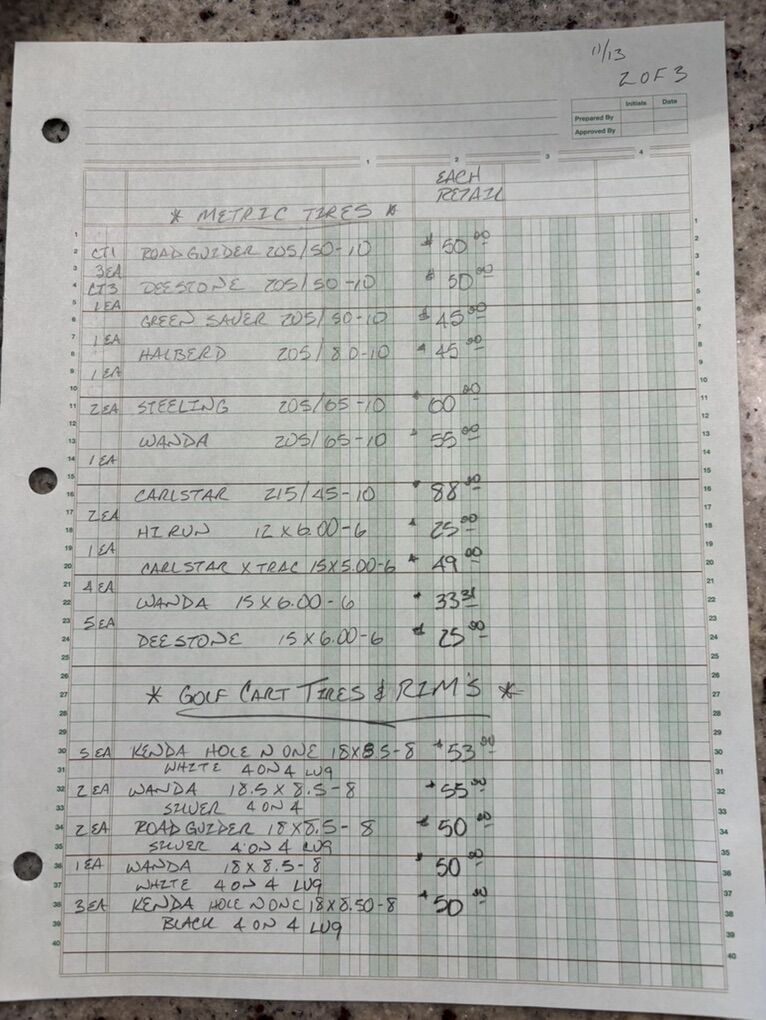 11/13
2 OF 3
Initials Date
Prepared By
Approved By
1 2 3 4
EACH
RETAIL
* METRIC TIRES *
1 1
2 CT1 ROAD GUIDER 205/50-10 $ 50.00 2
3 3EA 3
4 CT3 DEESTONE 205/50-10 $ 50.00 4
5 1EA 5
6 GREEN SAVER 205/50-10 $ 45.00 6
7 1EA 7
8 HALBERD 205/80-10 $ 45.00 8
9 1EA 9
10 10
11 2EA STEELING 205/65-10 $ 60.00 11
12 12
13 WANDA 205/65-10 $ 55.00 13
14 1EA 14
15 15
16 CARLSTAR 215/45-10 $ 88.00 16
17 2EA 17
18 HI RUN 12X6.00-6 $ 25.00 18
19 1EA 19
20 CARLSTAR X TRAC 15X5.00-6 $ 49.00 20
21 4EA 21
22 WANDA 15X6.00-6 $ 33.31 22
23 5EA 23
24 DEESTONE 15X6.00-6 $ 25.00 24
25 25
26 26
27 * GOLF CART TIRES & RIM'S * 27
28 28
29 29
30 5EA KENDA HOLE N ONE 18X8.5-8 $ 53.00 30
31 WHITE 4 ON 4 LUG 31
32 2EA WANDA 18.5X8.5-8 $ 55.00 32
33 SILVER 4 ON 4 33
34 2EA ROAD GUIDER 18X8.5-8 $ 50.00 34
35 SILVER 4 ON 4 LUG 35
36 1EA WANDA 18X8.5-8 $ 50.00 36
37 WHITE 4 ON 4 LUG 37
38 3EA KENDA HOLE N ONE 18X8.50-8 $ 50.00 38
39 BLACK 4 ON 4 LUG 39
40 40